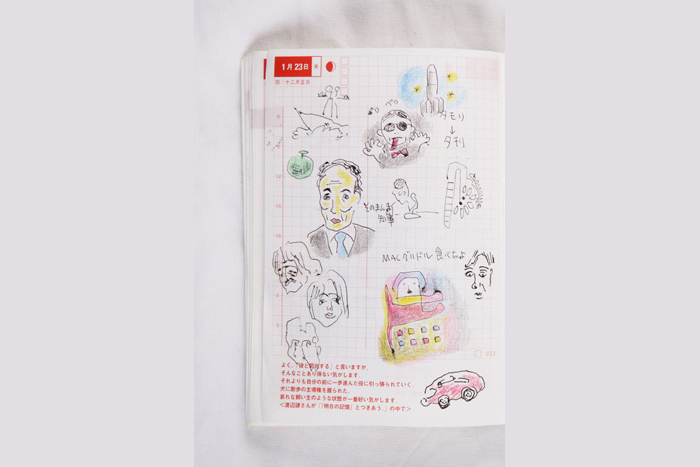 1月23日 火
旧：十二月五日
タモリ
↓
タモリ
そのまんま
知事
MACグルドル 食べたよ
023
よく、「役と同化する」と言いますが、
そんなことあり得ない気がします。
それよりも自分の前に一歩進んだ役に引っ張られていく、
犬に散歩の主導権を握られた、
哀れな飼い主のような状態が一番好い気がします。
＜渡辺謙さんが『「明日の記憶」とつきあう。』の中で＞